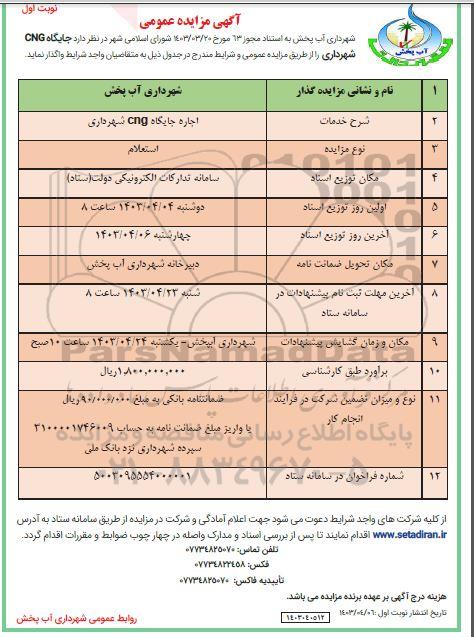 نوبت اول
آگهی مزایده عمومی
شهرداری آب پخش به استناد مجوز ۶۳ مورخ ۱۴۰۳/۰۳/۲۰ شورای اسلامی شهر در نظر دارد جایگاه CNG
شهرداری را از طریق مزایده عمومی و شرایط مندرج در جدول ذیل به متقاضیان واجد شرایط واگذار نماید.
آب پخش
۱ نام و نشانی مزایده گذار شهرداری آب پخش
۲ شرح خدمات اجاره جایگاه cng شهرداری
۳ نوع مزایده استعلام
۴ مکان توزیع اسناد سامانه تدارکات الکترونیکی دولت(ستاد)
۵ اولین روز توزیع اسناد دوشنبه ۱۴۰۳/۰۴/۰۴ ساعت ۸
۶ آخرین روز توزیع اسناد چهارشنبه ۱۴۰۳/۰۴/۰۶
۷ مکان تحویل ضمانت نامه دبیرخانه شهرداری آب پخش
۸ آخرین مهلت ثبت نام پیشنهادات در شنبه ۱۴۰۳/۰۴/۲۳ ساعت ۸
سامانه ستاد
۹ مکان و زمان گشایش پیشنهادات شهرداری آبپخش- یکشنبه ۱۴۰۳/۰۴/۲۴ ساعت ۱۰صبح
۱۰ برآورد طبق کارشناسی ۱,۸۰۰,۰۰۰,۰۰۰ریال
۱۱ نوع و میزان تضمین شرکت در فرآیند ضمانتنامه بانکی به مبلغ ۹۰/۰۰۰/۰۰۰ریال
انجام کار یا واریز مبلغ ضمانت نامه به حساب ۳۱۰۰۰۰۱۷۴۶۰۰۹
سپرده شهرداری نزد بانک ملی
۱۲ شماره فراخوان در سامانه ستاد ۵۰۰۳۰۹۵۵۵۴۰۰۰۰۰۱
ParsNamadData
پایگاه اطلاع رسانی مناقصه و مزایده
۰۲۱-۸۸۳۴۹۶۷۰-۵
از کلیه شرکت های واجد شرایط دعوت می شود جهت اعلام آمادگی و شرکت در مزایده از طریق سامانه ستاد به آدرس
www.setadiran.ir اقدام نمایند تا پس از بررسی اسناد و مدارک واصله در چهار چوب ضوابط و مقررات اقدام گردد.
تلفن تماس: ۰۷۷۳۴۸۲۵۰۷۰
فکس: ۰۷۷۳۴۸۲۲۴۵۸
تأییدیه فاکس: ۰۷۷۳۴۸۲۵۰۷۰
هزینه درج آگهی بر عهده برنده مزایده می باشد.
تاریخ انتشار نوبت اول: ۱۴۰۳/۰۴/۰۶
۱۴۰۳۰۴۰۵۱۲
روابط عمومی شهرداری آب پخش